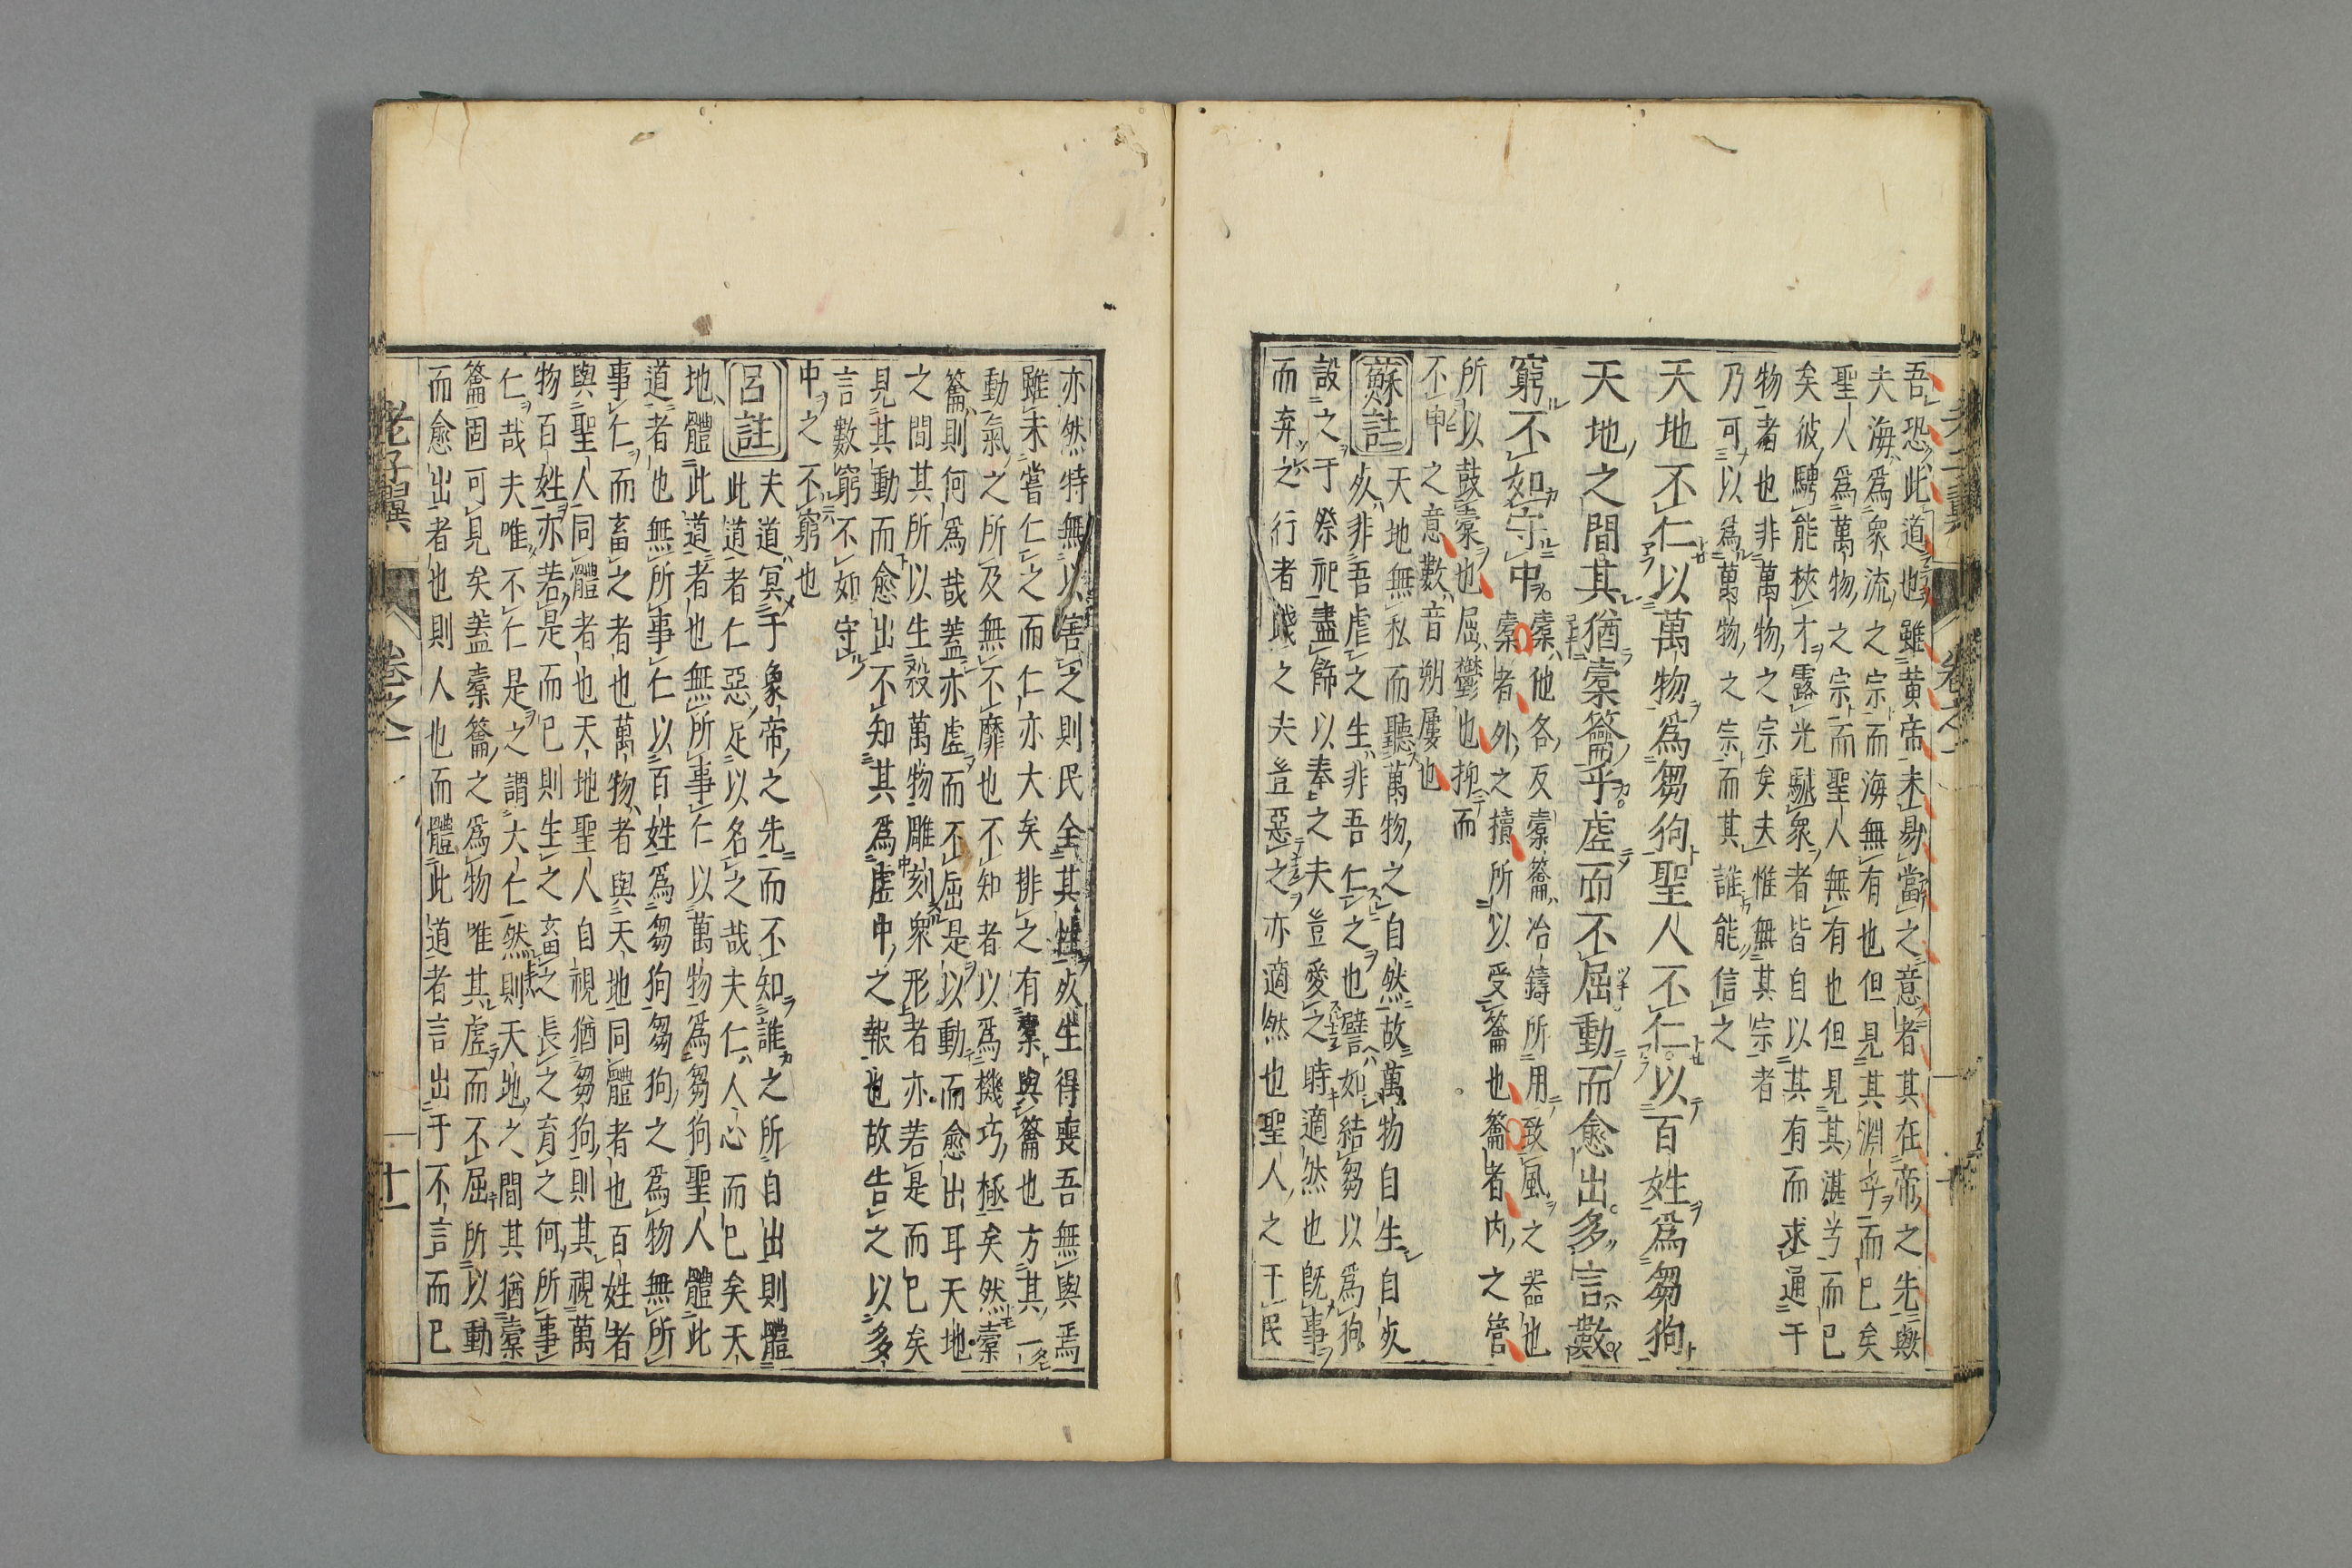 吾恐此道也雖黄帝未易當之意者其在帝之先與
夫海爲衆流之宗而海無有也但見其淵乎而已矣
聖人爲萬物之宗而聖人無有也但見其湛兮而已
矣彼騁能挾才露光駴衆者皆自以其有而求通于
物者也非萬物之宗矣夫惟無其宗者
乃可以爲萬物之宗而其誰能信之
天地不仁以萬物爲芻狗聖人不仁以百姓爲芻狗
天地之間其猶橐籥乎虛而不屈動而愈出多言數
窮不如守中
橐他各反橐籥冶鑄所用致風之器也
橐者外之櫝所以受籥也籥者内之管
所以鼓橐也屈鬱也抑而
不申之意數音朔屢也
蘇註
天地無私而聽萬物之自然故萬物自生自死
死非吾虐之生非吾仁之也譬如結芻以爲狗
設之于祭祀盡飾以奉之夫豈愛之時適然也既事
而弃之行者踐之夫豈惡之亦適然也聖人之于民
亦然特無以害之則民全其性死生得喪吾無與焉
雖未嘗仁之而仁亦大矣排之有橐與籥也方其一
動氣之所及無不靡也不知者以爲機巧極矣然橐
籥則何爲哉蓋亦虛而不屈是以動而愈出耳天地
之間其所以生殺萬物雕刻衆形者亦若是而已矣
見其動而愈出不知其爲虛中之報也故告之以多
言數窮不如守
中之不窮也
呂註
夫道冥于象帝之先而不知誰之所自出則體
此道者仁惡足以名之哉夫仁人心而已矣天
地體此道者也無所事仁以萬物爲芻狗聖人體此
道者也無所事仁以百姓爲芻狗芻狗之爲物無所
事仁而畜之者也萬物者與天地同體者也百姓者
與聖人同體者也天地聖人自視猶芻狗則其視萬
物百姓亦若是而已則生之畜之長之育之何所事
仁哉夫唯不仁是之謂大仁然則天地之間其猶橐
籥固可見矣蓋橐籥之爲物唯其虛而不屈所以動
而愈出者也則人也而體此道者言出于不言而已
老子翼 卷之一 十一